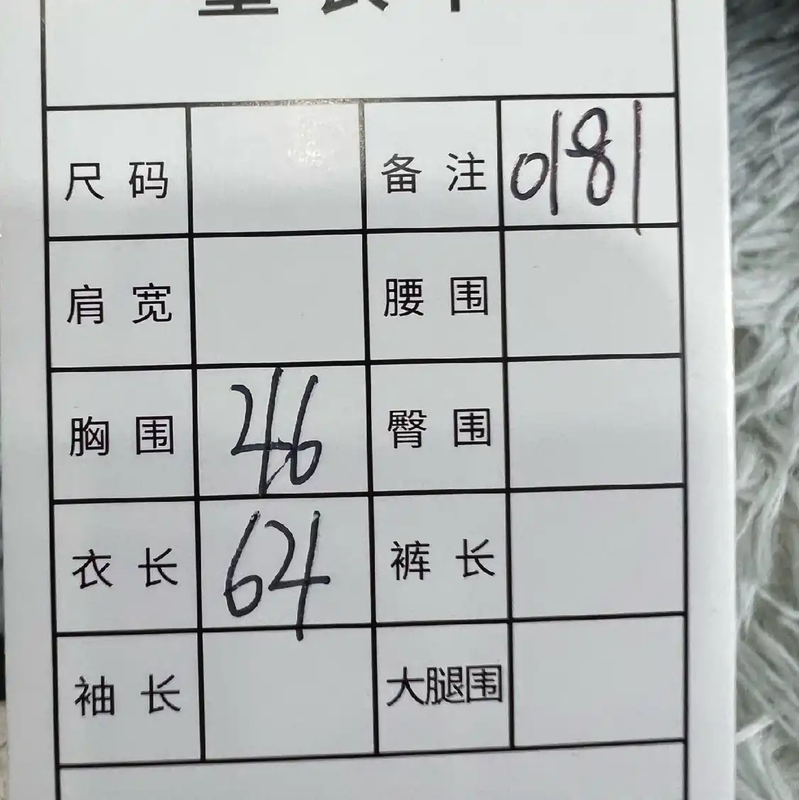 尺码 备注 0181
肩宽 腰围
胸围 46 臀围
衣长 64 裤长
袖长 大腿围